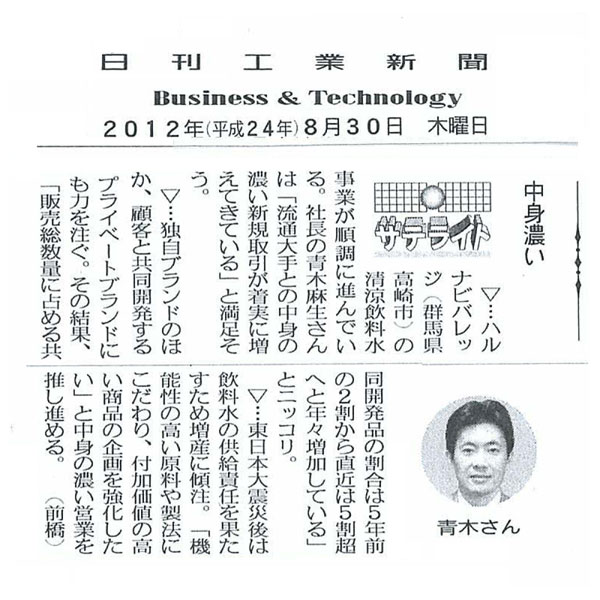 日刊工業新聞
Business & Technology
2012年(平成24年)8月30日 木曜日
中身濃い
サテライト
▽…ハル
ナビバレッ
ジ(群馬県
高崎市)の
清涼飲料水
事業が順調に進んでい
る。社長の青木麻生さん
は「流通大手との中身の
濃い新規取引が着実に増
えてきている」と満足そ
う。
▽…独自ブランドのほ
か、顧客と共同開発する
プライベートブランドに
も力を注ぐ。その結果、
「販売総数量に占める共
同開発品の割合は5年前
の2割から直近は5割超
へと年々増加している」
とニッコリ。
▽…東日本大震災後は
飲料水の供給責任を果た
すため増産に傾注。「機
能性の高い原料や製法に
こだわり、付加価値の高
い商品の企画を強化した
い」と中身の濃い営業を
推し進める。(前橋)
青木さん